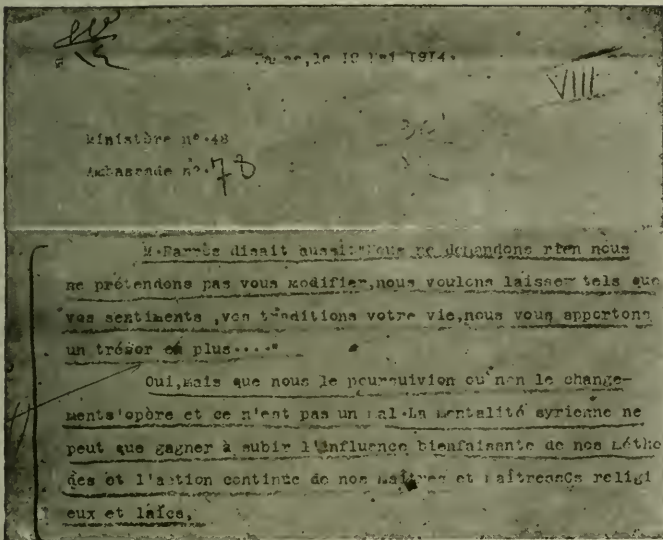 le 19 Mai 1914.
VIII
Ministère n°.48
Ambassade n°.78
M.Barrès disait aussi:"Nous ne demandons rien nous
ne prétendons pas vous modifier,nous voulons laisser tels que
vos sentiments ,vos traditions votre vie,nous vous apportons
un trésor en plus...."
Oui,mais que nous le poursuivion ou non le change-
ments'opère et ce n'est pas un mal.La mentalité syrienne ne
peut que gagner à subir l'influence bienfaisante de nos Métho
des et l'action continue de nos maîtres et maîtresses religi
eux et laïcs,